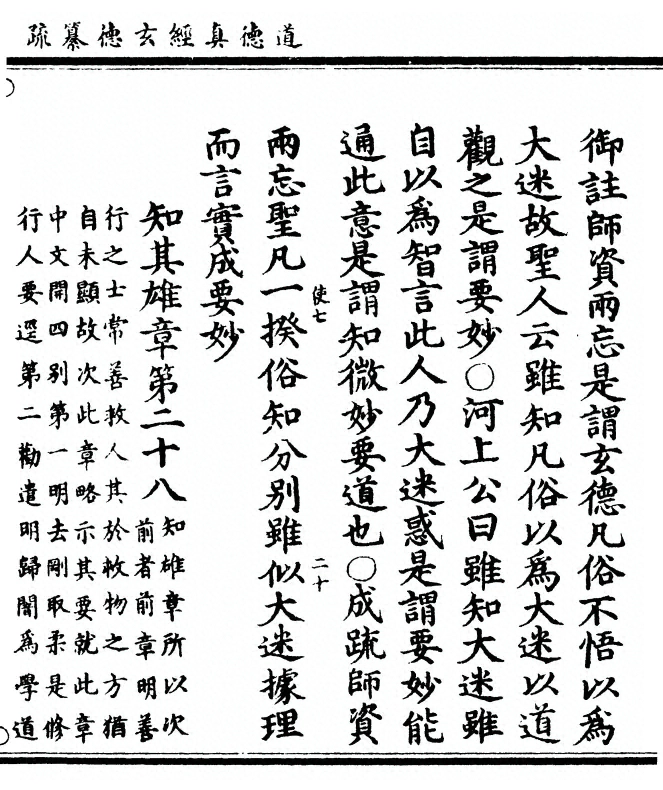 道德真經玄德纂疏
御註師資兩忘是謂玄德凡俗不悟以爲
大迷故聖人云雖知凡俗以爲大迷以道
觀之是謂要妙○河上公曰雖知大迷雖
自以爲智言此人乃大迷惑是謂要妙能
通此意是謂知微妙要道也○成䟽師資
使七 二十
兩忘聖凡一揆俗知分別雖似大迷據理
而言實成要妙
知其雄章第二十八
知雄章所以次
前者前章明善
行之士常善救人其於救物之方猶
自未顯故次此章略示其要就此章
中文開四別第一明去剛取柔是修
行人要逕第二勸遣明歸闇爲學道